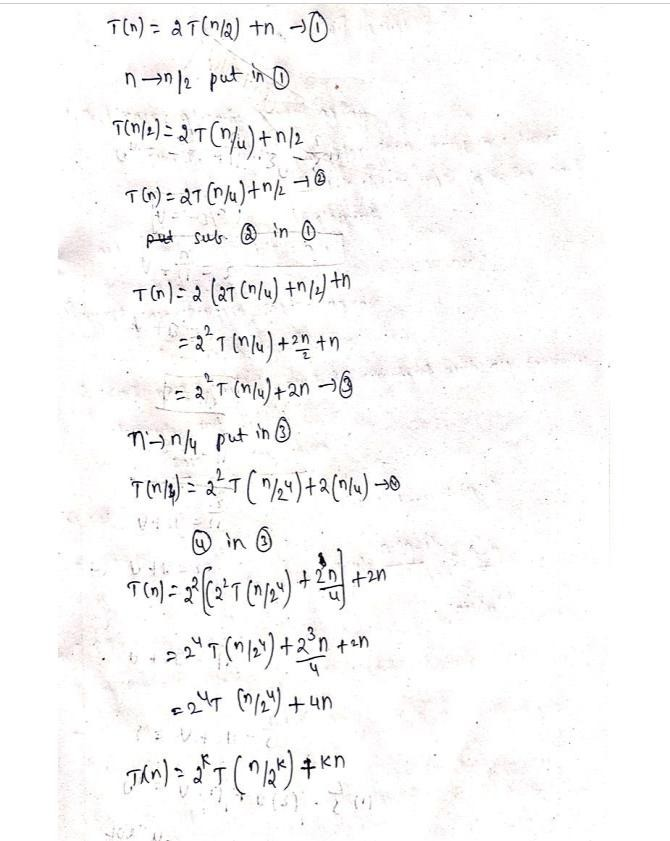 T(n) = 2T(n/2) + n → ①
n → n/2 put in ①
T(n/2) = 2T(n/4) + n/2
T(n) = 2T(n/4) + n/2 → ②
put sub. ② in ①
T(n) = 2(2T(n/4) + n/2) + n
= 2² T(n/4) + 2n/2 + n
= 2² T(n/4) + 2n → ③
n → n/4 put in ③
T(n/4) = 2² T(n/2⁴) + 2(n/4) → ④
④ in ③
T(n) = 2² [(2² T(n/2⁴) + 2n/4] + 2n
= 2⁴ T(n/2⁴) + 2³n/4 + 2n
= 2⁴T (n/2⁴) + 4n
T(n) = 2ᵏ T(n/2ᵏ) + kn